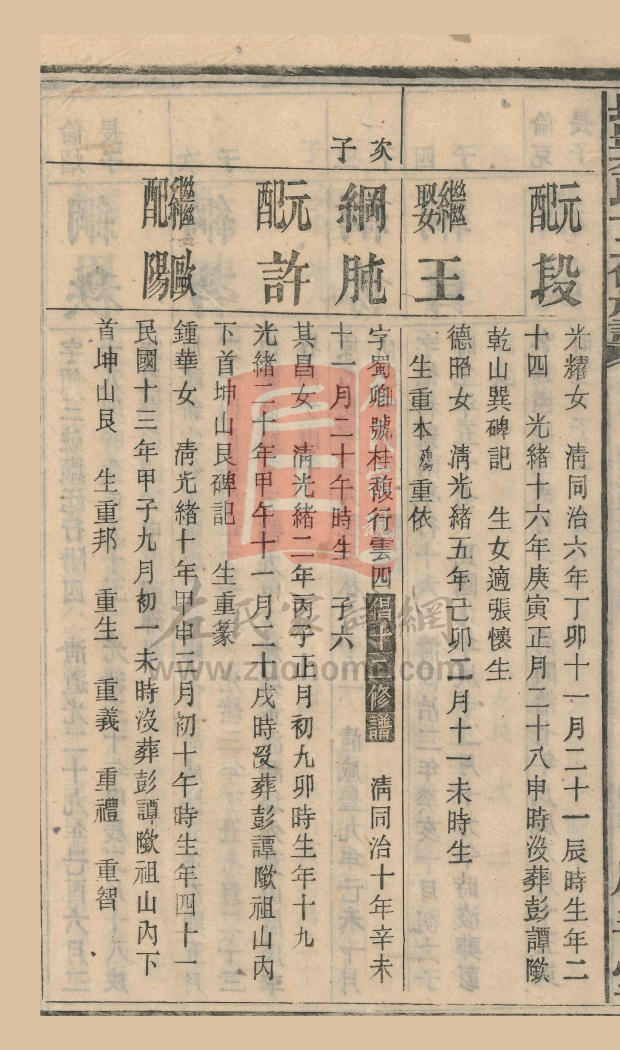 元配段
光耀女　清同治六年丁卯十一月二十一辰時生年二
十四　光緒十六年庚寅正月二十八申時沒葬彭譚歞
乾山巽碑記　生女適張懷生
繼娶王
德昭女　清光緒五年己卯二月十一未時生
生重本　重依
次子
綱肫
字蜀卿號桂馥行雲四　修譜　清同治十年辛未
十一月二十午時生　子六
元配許
其昌女　清光緒二年丙子正月初九卯時生年十九
光緒二十年甲午十一月二十戌時沒葬彭譚歞祖山內
下首坤山艮碑記　生重篆
繼配歐陽
鍾華女　清光緒十年甲申三月初十午時生年四十一
民國十三年甲子九月初一未時沒葬彭譚歞祖山內下
首坤山艮　生重邦　重生　重義　重禮　重智
左氏家譜網
www.zuohome.com